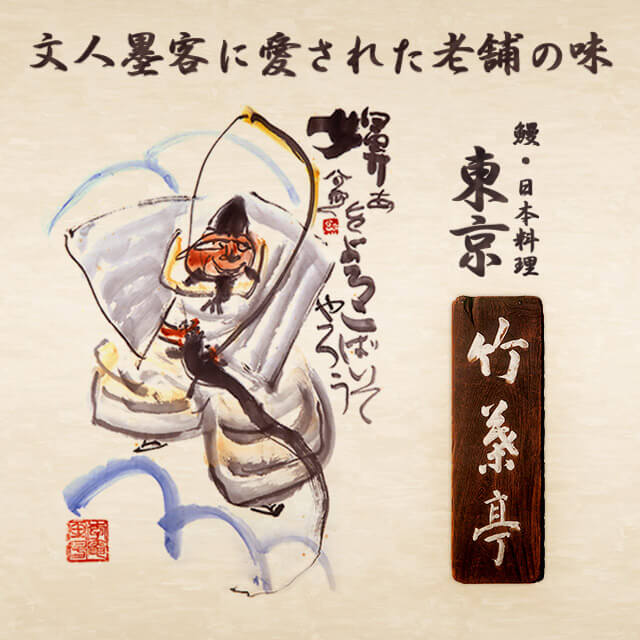 文人墨客に愛された老舗の味
鰻・日本料理
東京
竹葉亭
をよろこばいて
やろう